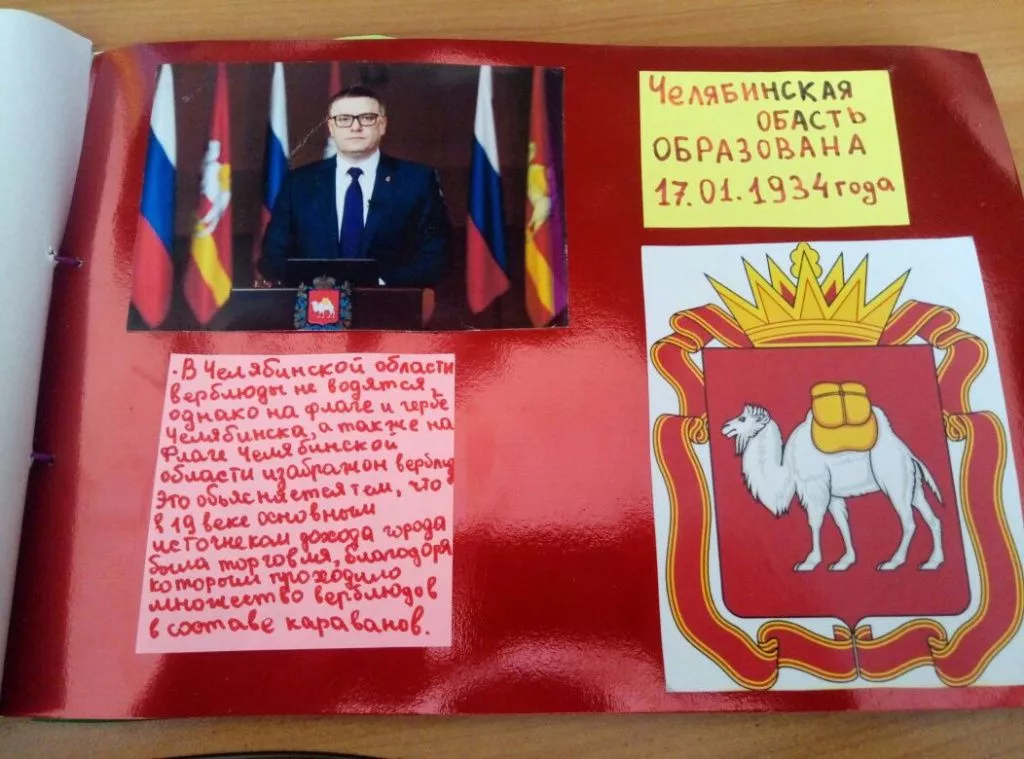 ЧЕЛЯБИНСКАЯ
ОБАСТЬ
ОБРАЗОВАНА
17.01.1934 года
· В Челябинской области
верблюды не водятся,
однако на флаге и гербе
Челябинска, а также на
Флаге Челябинской
области изабражон верблюд
Это обьясняется тем, что
в 19 веке основным
источнеком дохода города
была торговля, благодоря
которым проходило
множество верблюдов
в составе караванов.